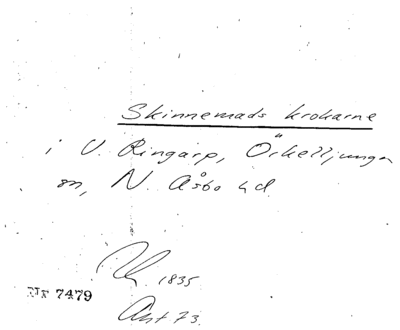 Skinnemads krokarne
i V. Ringarp, Örkelljunga
sn, N. Åsbo hd
1835
Nr 7479
Ant 73.